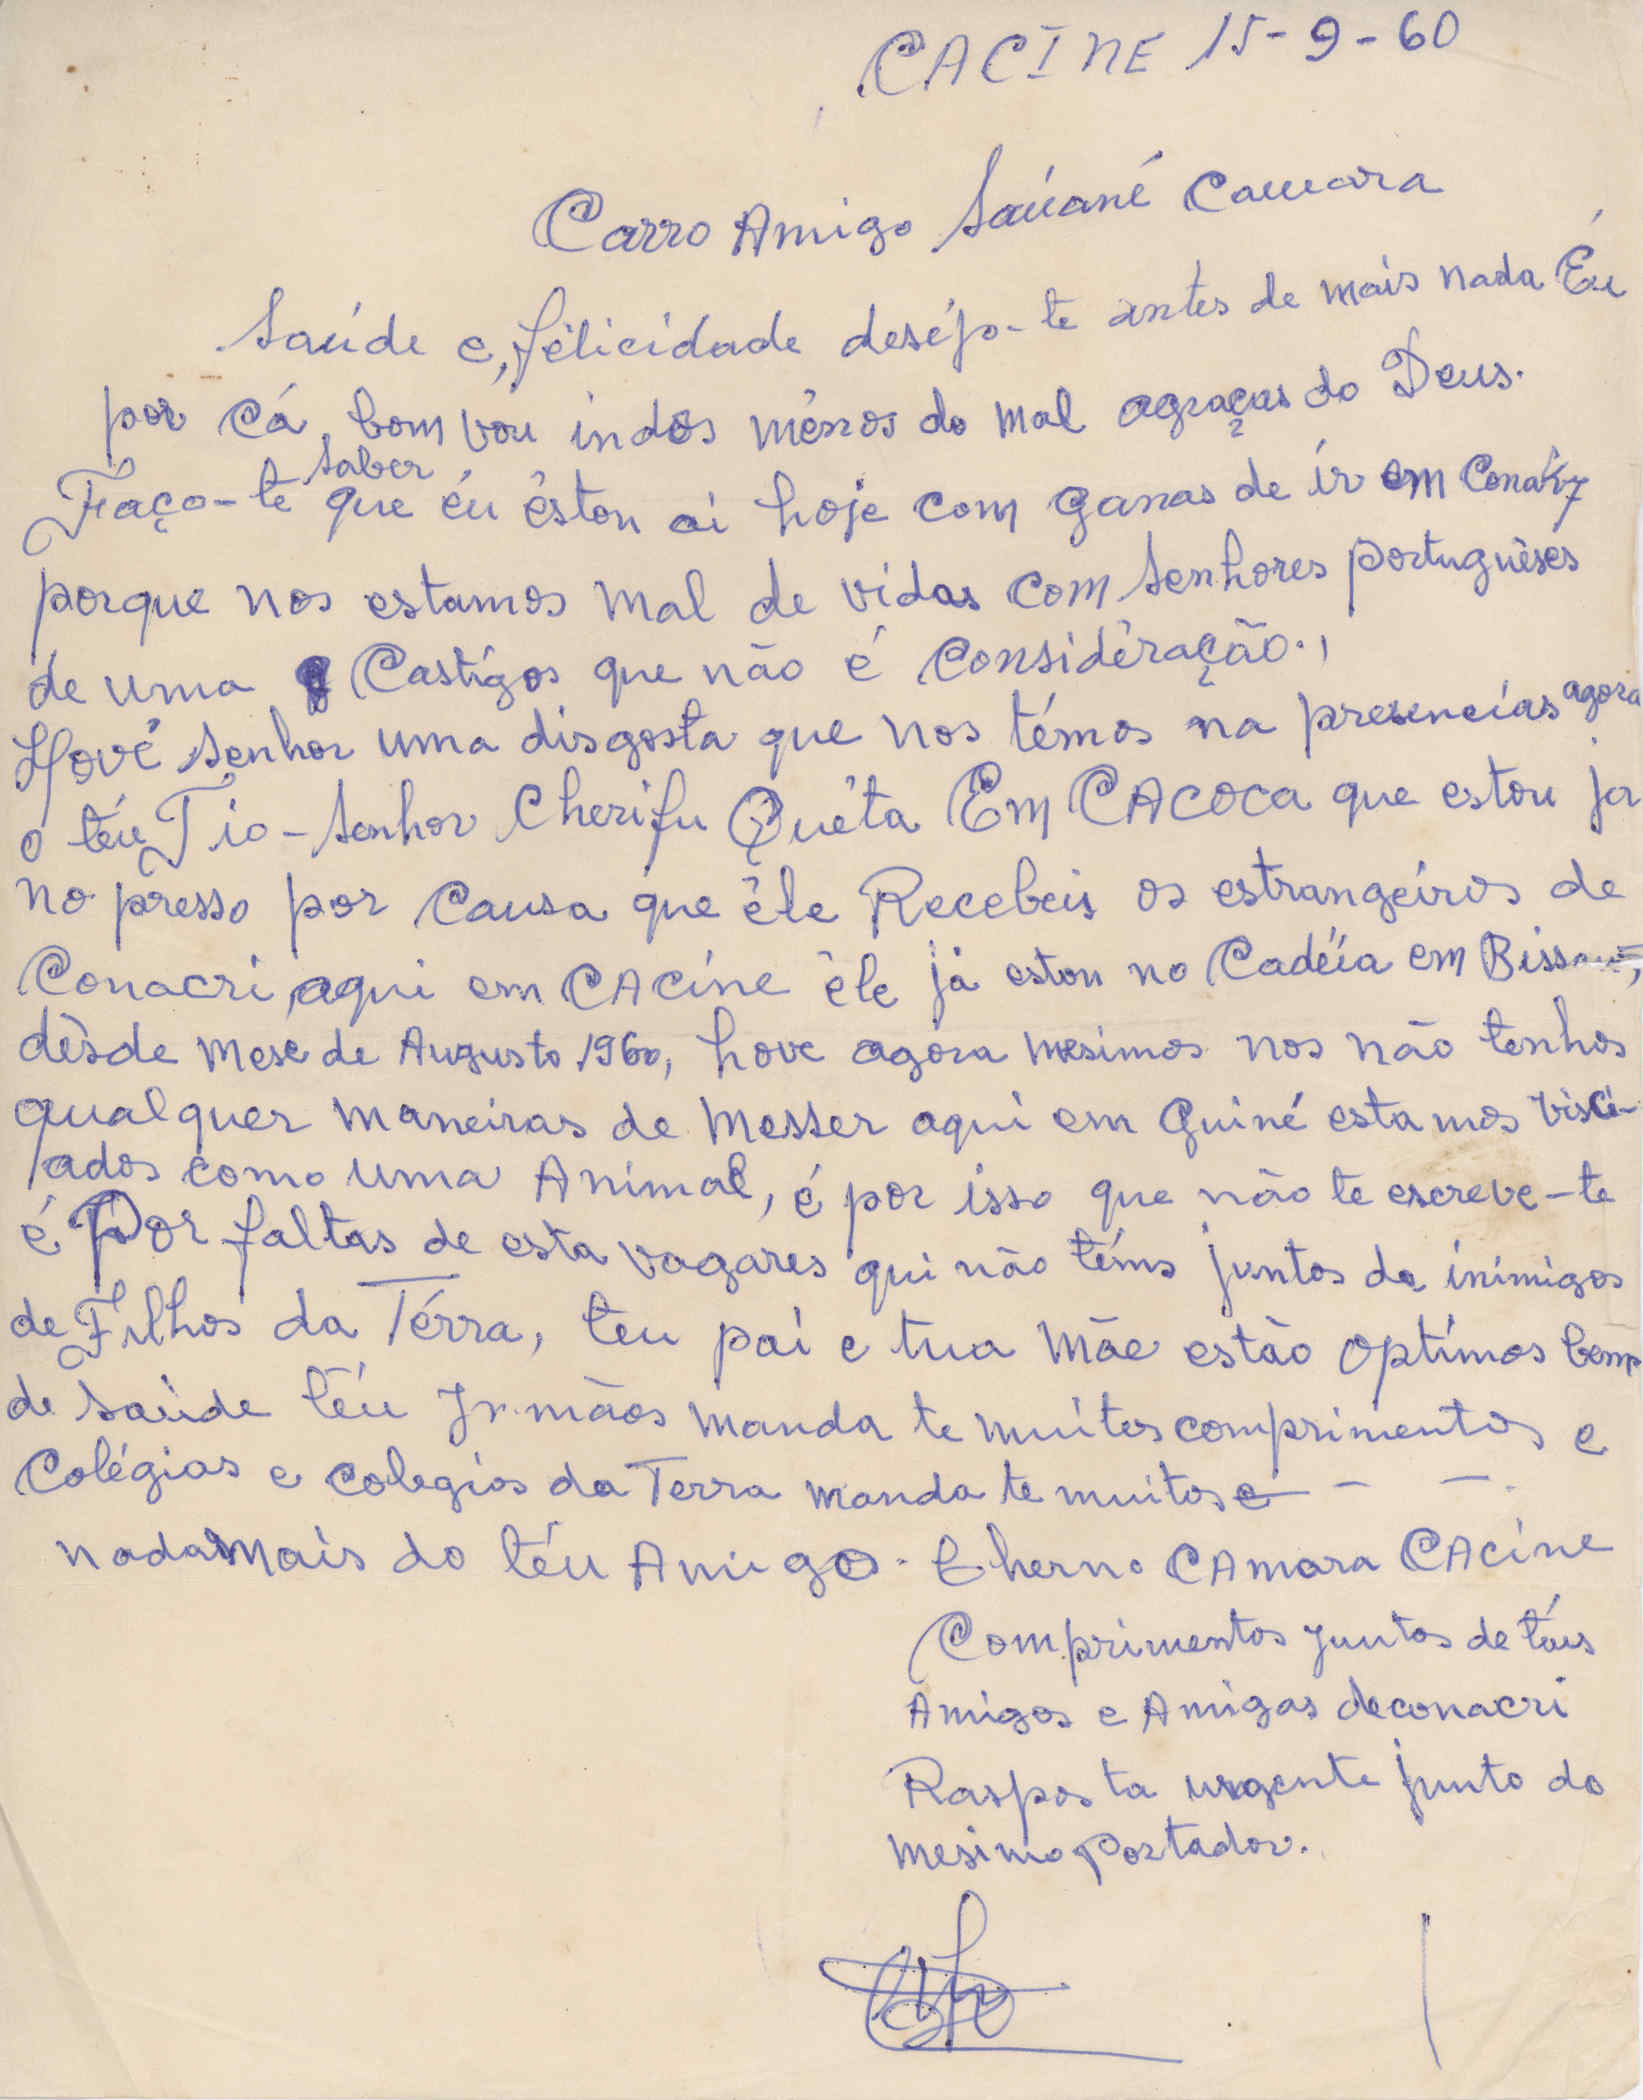 CACINE 15-9-60
Carro Amigo Sáuané Camara
Saúde e, félicidade deséjo-te antes de mais nada Éu
por cá, bom vou indos ménos do mal agraças do Deus.
Faço-te saber que éu éstou ai hoje com ganas de ír em Conakry
porque nos estamos mal de vidas com Senhores portuguêses
de uma Castígos que não é considéração.,
Hové Senhor uma disgosta que nos témos na presencías agora
o téu Tio-Senhor Cherifu Quéta Em CACOCA que estou ja
no presso por causa que êle Recebeis os estrangeiros de
Conacri, aqui em CACíne êle já estou no Cadéia em Bissau,
désde mese de Augusto 1960, hove agora mesimos nos não tenhos
qualquer maneiras de messer aqui em Guiné estamos visci-
ados como uma Animal, é por isso que não te escreve-te
é Por faltas de esta vagares qui não téms juntos do inimigos
de Filhos da Térra, teu pai e tua Mãe estão optímos bem
de saúde téu Irmãos manda te muítos comprimentos e
Colégias e colegios da Terra manda te muitos e - - .
nada mais do téu Amigos. Cherno CAmara CACíne
Comprimentos juntos de táis
Amigos e Amigas de conacri
Rasposta urgente junto do
mesimo portador.